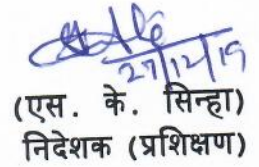 27/12/19
(एस. के. सिन्हा)
निदेशक (प्रशिक्षण)